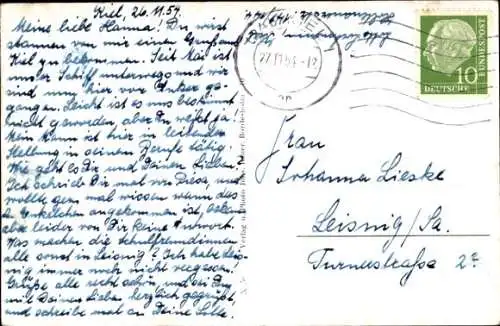 Kiel, 26.11.54.
Meine liebe Hanna! Du wirst
staunen von mir einen Gruß aus
Kiel zu bekommen. Seit Mai ist
unser Schiff unterwegs und wir
sind nun hier vor Anker ge-
gangen. Leicht ist es uns bestimmt
nicht geworden, aber Du weißt ja!
Mein Mann ist hier in leitender
Stellung in seinem Berufe tätig.
Wie geht es Dir und Deinen Lieben?
Ich schrieb Dir mal von Riesa, und
wollte gern mal wissen wann das
Enkelchen angekommen ist, bekam
aber leider von Dir keine Antwort.
Was machen die Schulfreundinnen
alle sonst in Leisnig? Ich habe Leis-
nig immer noch nicht vergessen!
Grüße alle recht schön, und sei Du
mit Deinen Lieben herzlich gegrüßt,
und schreibe mal an Deine Lotte.
27.11.54.-12
10
DEUTSCHE
BUNDESPOST
Frau
Johanna Lieske
Leisnig/Sa.
Turnerstraße 2